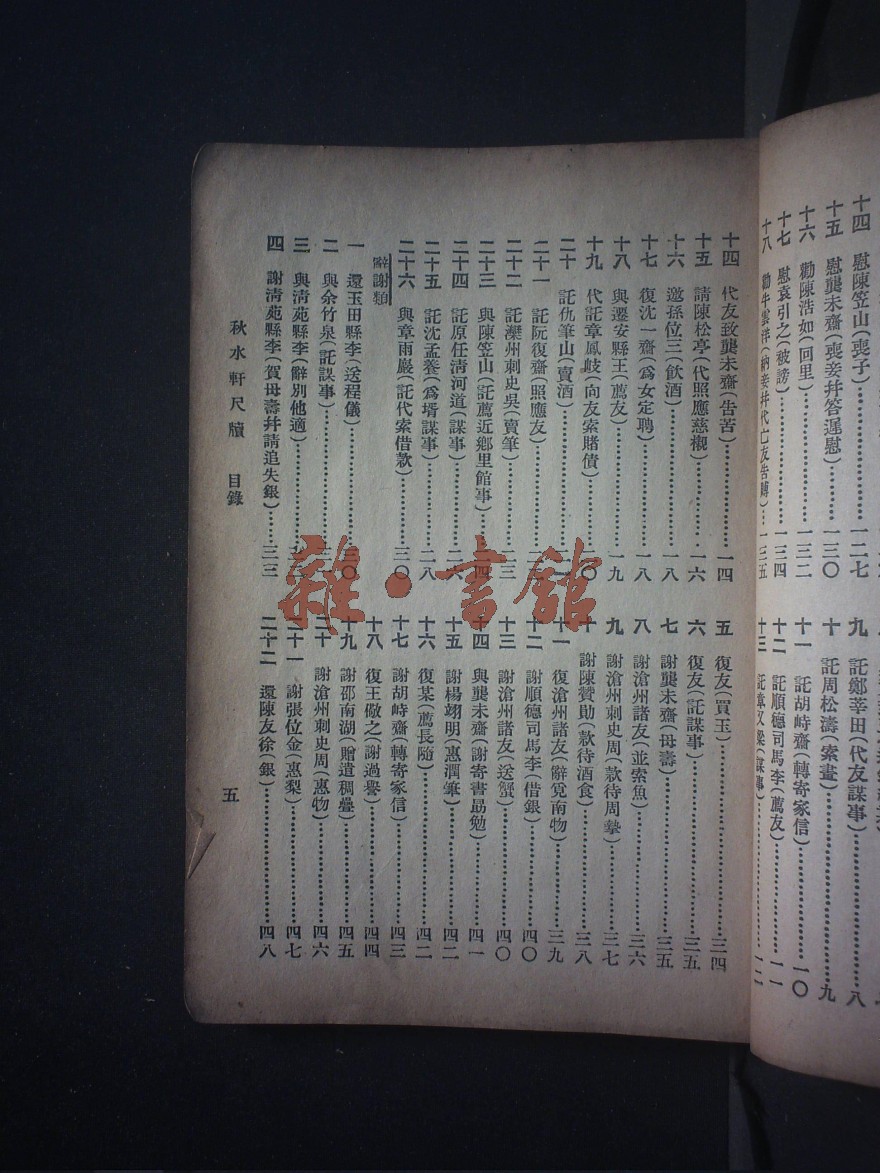 十四 慰陳笠山(喪子)…一二七
十五 慰龔未齋(喪妾幷答遲慰)…一三〇
十六 勸陳浩如(回里)…一三二
十七 慰袁引之(被謗)…一三四
十八 勸牛雲洋(納妾幷代亡友告賻)…一三五
九 託鄭莘田(代友謀事)…八
十 託周松濤(索畫)…九
十一 託胡峙齋(轉寄家信)…一〇
十二 託順德司馬李(薦友)…一一
十三 託章又梁(謀事)…一二
十四 代友致龔未齋(告苦)…一四
十五 請陳松亭(代照應慈櫬)…一六
十六 邀孫位三(飲酒)…一八
十七 復沈一齋(爲女定聘)…一八
十八 與遷安縣王(薦友)…一九
十九 代託章鳳岐(向友索賭債)…〇
二十 託仇筆山(賣酒)
二十一 託阮復齋(照應友)
二十二 託灤州刺史吳(賣筆)…三
二十三 與陳笠山(託薦近鄉里館事)…四
二十四 託原任淸河道(謀事)…二六
二十五 託沈孟養(爲壻謀事)…二八
二十六 與章雨巖(託代索借款)…三〇
辭謝類
一 還玉田縣李(送程儀)…三〇
二 與余竹泉(託謀事)
三 與淸苑縣李(辭別他適)
四 謝淸苑縣李(賀母壽幷請追失銀)…三三
五 復友(買玉)…三四
六 復友(託謀事)…三五
七 謝龔未齋(母壽)…三五
八 謝滄州諸友(並索魚)…三六
九 謝滄州刺史周(款待周摯)…三七
十 謝陳贊勛(款待酒食)…三八
十一 復滄州諸友(辭覓南物)…三九
十二 謝順德司馬李(借銀)…四〇
十三 謝滄州諸友(送蟹)…四〇
十四 與龔未齋(謝寄書勗勉)…四一
十五 謝楊翊明(惠潤筆)…四二
十六 復某(薦長隨)…四二
十七 謝胡峙齋(轉寄家信)…四三
十八 復王儆之(謝過譽)…四四
十九 謝邵南湖(贈遺稠疊)…四五
二十 謝滄州刺史周(惠物)…四六
二十一 謝張位金(惠梨)…四七
二十二 還陳友徐(銀)…四八
秋水軒尺牘 目錄 五
雜·書館